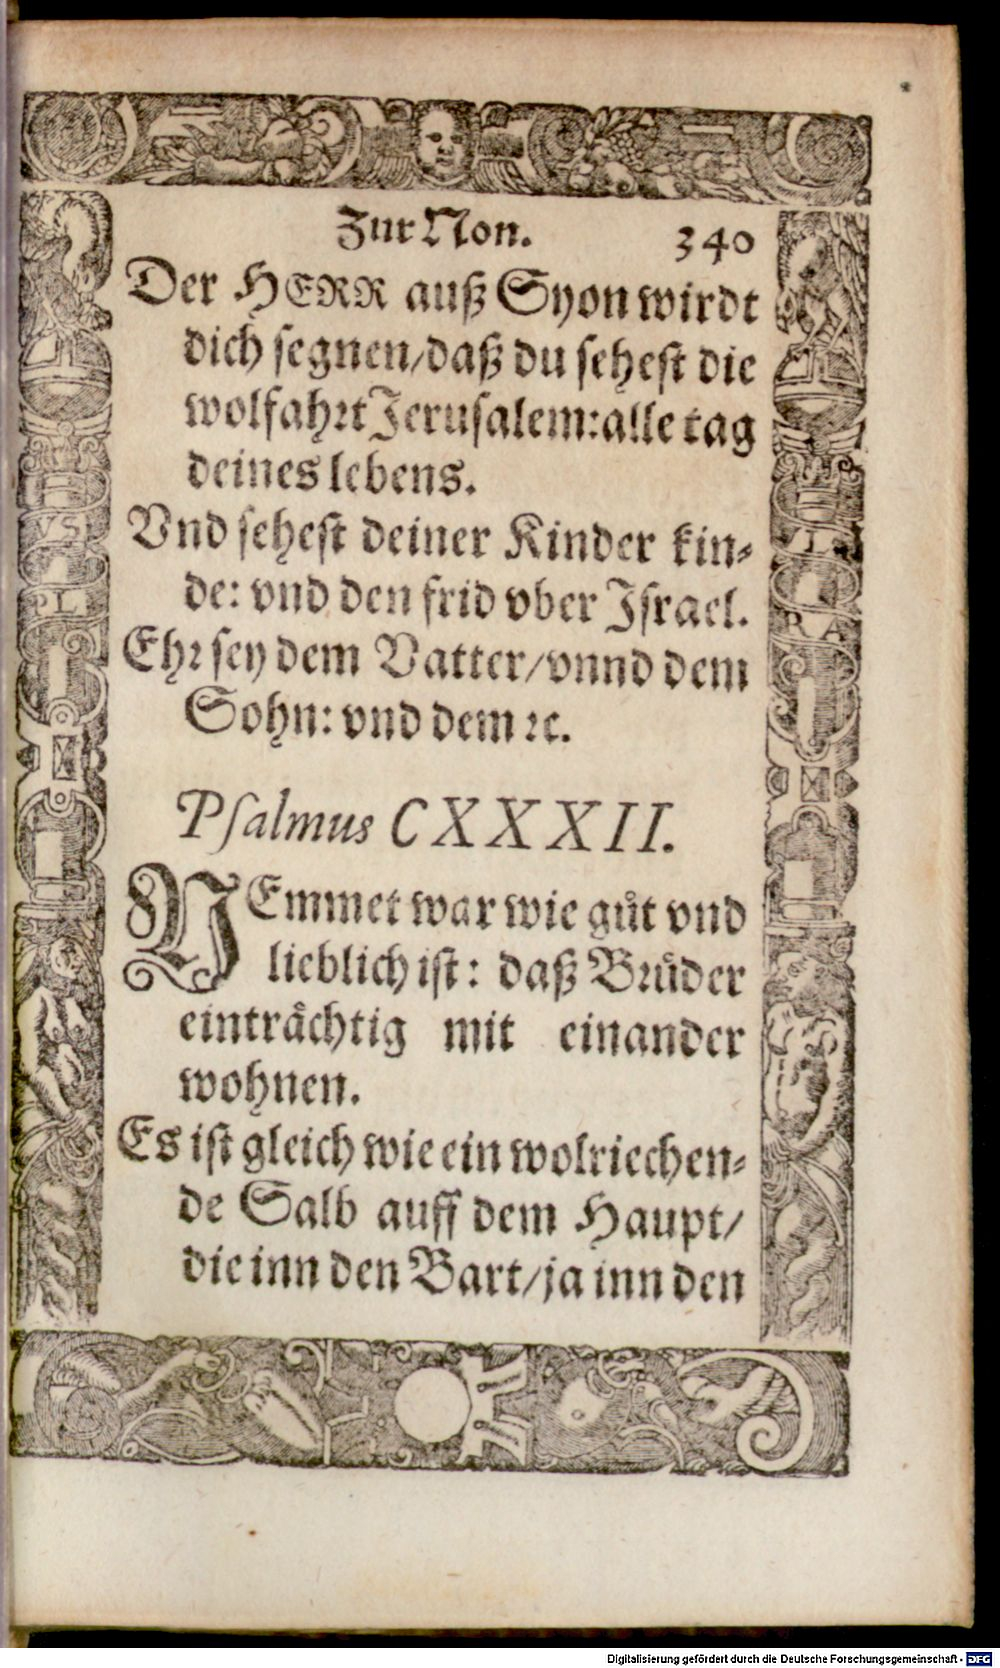 Zur Non. 340
Der HERR auß Syon wirdt
dich segnen/daß du sehest die
wolfahrt Jerusalem: alle tag
deines lebens.
Vnd sehest deiner Kinder kin⸗
de: vnd den frid vber Israel.
Ehr sey dem Vatter/vnnd dem
Sohn: vnd dem ꝛc.
Psalmus CXXXII.
NEmmet war wie gůt vnd
lieblich ist: daß Bruͤder
eintraͤchtig mit einander
wohnen.
Es ist gleich wie ein wolriechen⸗
de Salb auff dem Haupt/
die inn den Bart/ja inn den
VS
PL
L
RA
Digitalisierung gefördert durch die Deutsche Forschungsgemeinschaft - DFG